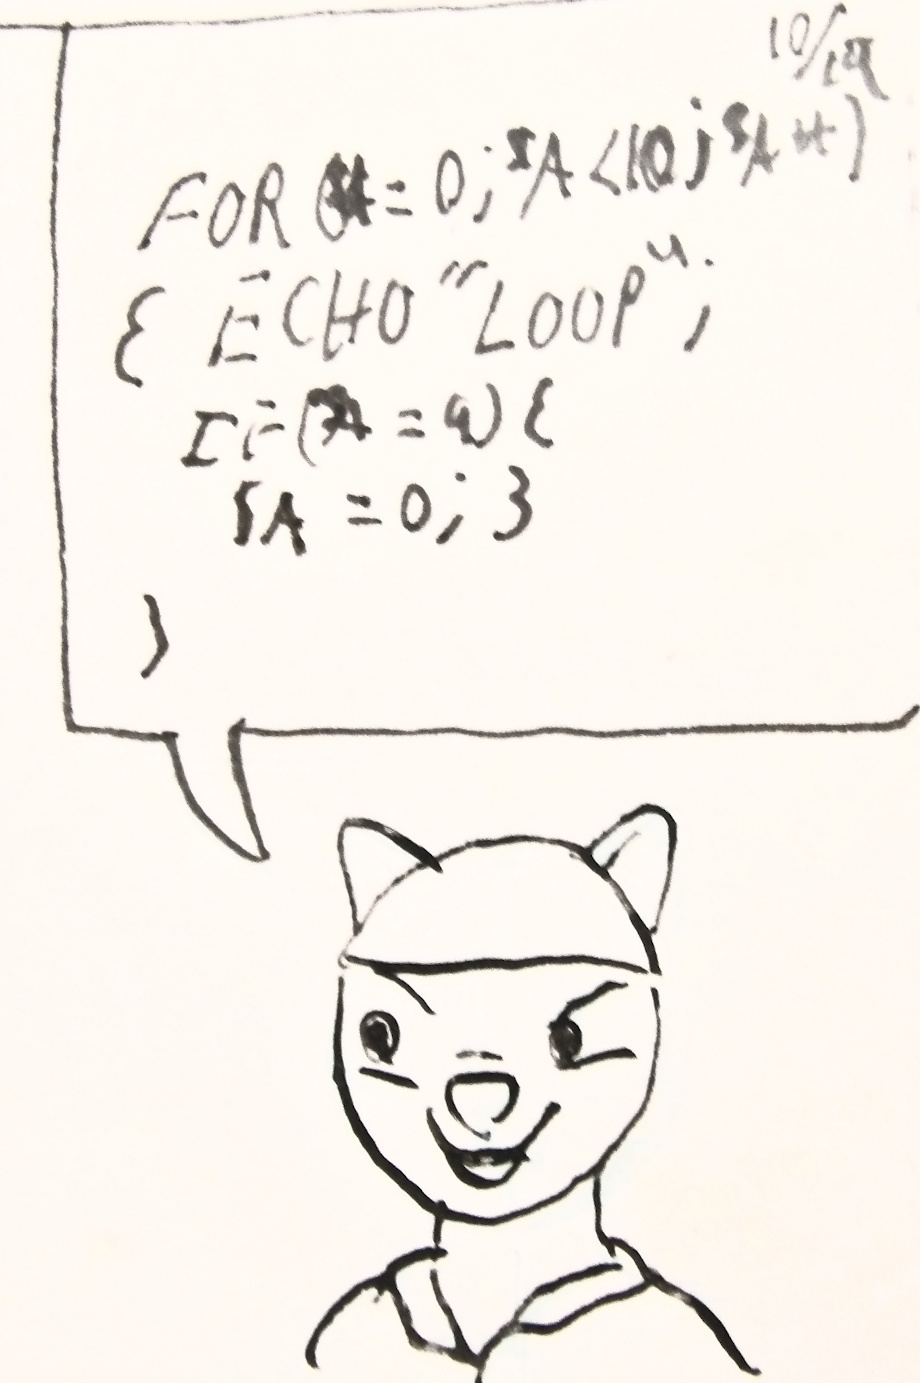 10/19
FOR ($A = 0; $A < 10; $A++)
{ ECHO "LOOP";
IF($A = 9) {
$A = 0; }
}